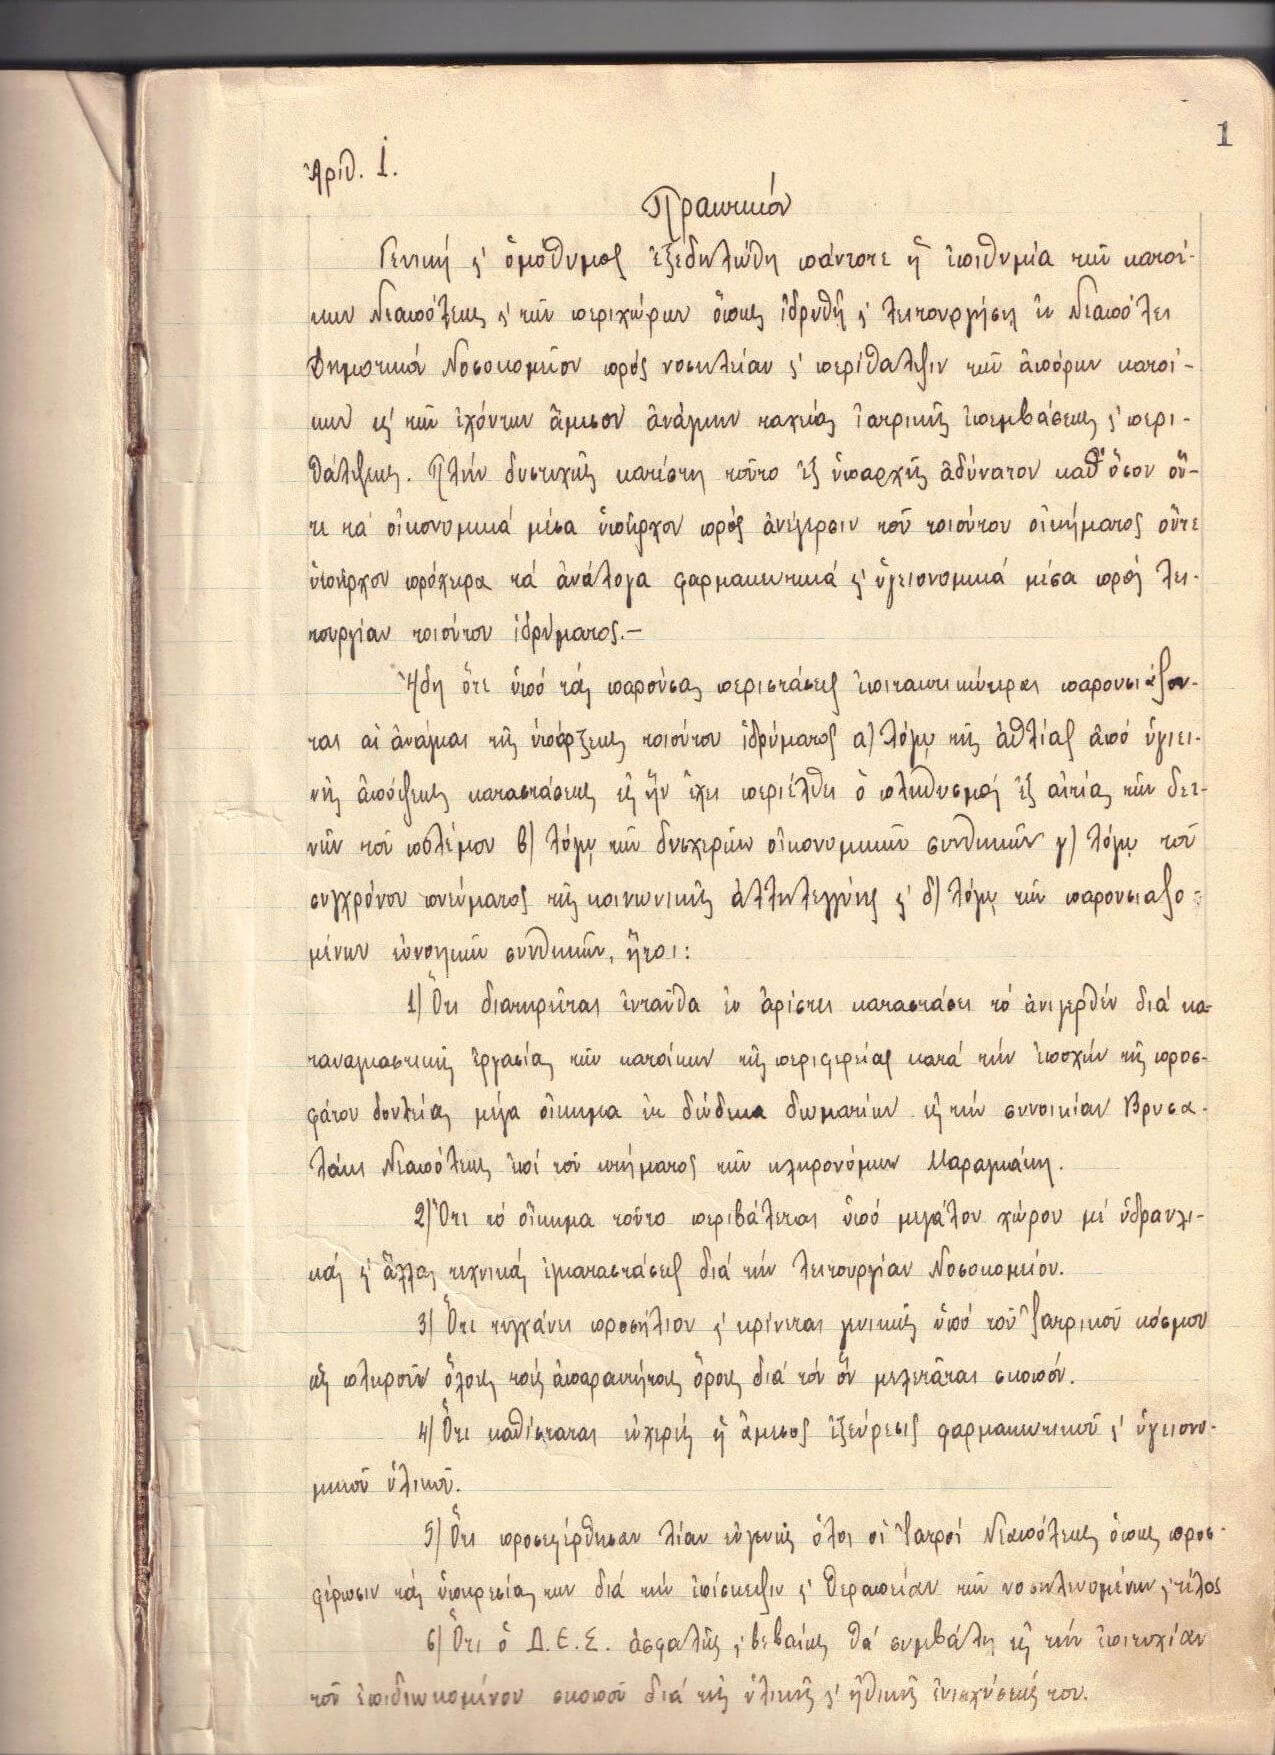 1
Ἀριθ. 1.
Πρακτικόν
Γενική ϛ' ὁμόθυμος ἐξεδηλώθη πάντοτε ἡ ἐπιθυμία τῶν κατοί-
κων Νεαπόλεως ϛ' τῶν περιχώρων ὅπως ἱδρυθῇ ϛ' λειτουργήσῃ ἐν Νεαπόλει
Δημοτικόν Νοσοκομεῖον πρός νοσηλείαν ϛ' περίθαλψιν τῶν ἀπόρων κατοί-
κων ὡς τῶν ἐχόντων ἄμεσον ἀνάγκην ταχείας ἰατρικῆς ἐπεμβάσεως ϛ' περι-
θάλψεως. Πλήν δυστυχῶς κατέστη τοῦτο ἐξ ὑπαρχῆς ἀδύνατον καθ' ὅσον οὔ-
τε τά οἰκονομικά μέσα ὑπῆρχον πρός ἀνέγερσιν τοῦ τοιούτου οἰκήματος οὔτε
ὑπῆρχον πρόχειρα τά ἀνάλογα φαρμακευτικά ϛ' ὑγειονομικά μέσα πρός λει-
τουργίαν τοιούτου ἱδρύματος.—
Ἤδη ὅτε ὑπό τάς παρούσας περιστάσεις ἐπιτακτικώτεραι παρουσιάζον-
ται αἱ ἀνάγκαι τῆς ὑπάρξεως τοιούτου ἱδρύματος α) λόγῳ τῆς ἀθλίας ἀπό ὑγιει-
νῆς ἀπόψεως καταστάσεως εἰς ἥν ἔχει περιέλθει ὁ πληθυσμός ἐξ αἰτίας τῶν δει-
νῶν τοῦ πολέμου β) λόγῳ τῶν δυσχερῶν οἰκονομικῶν συνθηκῶν γ) λόγῳ τοῦ
συγχρόνου πνεύματος τῆς κοινωνικῆς ἀλληλεγγύης ϛ' δ) λόγῳ τῶν παρουσιαζο-
μένων εὐνοϊκῶν συνθηκῶν, ἤτοι:
1) Ὅτι διατηρεῖται ἐνταῦθα ἐν ἀρίστει καταστάσει τό ἀνεγερθέν διά κα-
ταναγκαστικῆς ἐργασίας τῶν κατοίκων τῆς περιφερείας κατά τήν ἐποχήν τῆς προσ-
φάτου δουλείας μέγα οἴκημα ἐκ δώδεκα δωματίων εἰς τήν συνοικίαν Βρυσα-
λάκι Νεαπόλεως ἐπί τοῦ κτήματος τῶν κληρονόμων Μαραγκάκη.
2) Ὅτι τό οἴκημα τοῦτο περιβάλεται ὑπό μεγάλου χώρου μέ ὑδραυλι-
κάς ϛ' ἄλλας τεχνικάς ἐγκαταστάσεις διά τήν λειτουργίαν Νοσοκομείου.
3) Ὅτι τυγχάνει προσήλιον ϛ' κρίνεται γενικῶς ὑπό τοῦ Ἰατρικοῦ κόσμου
ὡς πληροῦν ὅλους τούς ἀπαραιτήτους ὅρους διά τόν ὅν μελετᾶται σκοπόν.
4) Ὅτι καθίσταται εὐχερής ἡ ἄμεσος ἐξεύρεσις φαρμακευτικοῦ ϛ' ὑγειονο-
μικοῦ ὑλικοῦ.
5) Ὅτι προσεφέρθησαν λίαν εὐγενῶς ὅλοι οἱ Ἰατροί Νεαπόλεως ὅπως προσ-
φέρωσιν τάς ὑπηρεσίας των διά τήν ἐπίσκεψιν ϛ' θεραπείαν τῶν νοσηλευομένων ϛ' τέλος
6) Ὅτι ὁ Δ.Ε.Σ. ἀσφαλῶς ϛ' βεβαίως θά συμβάλῃ εἰς τήν ἐπιτυχίαν
τοῦ ἐπιδιωκομένου σκοποῦ διά τῆς ὑλικῆς ϛ' ἠθικῆς ἐνισχύσεώς του.